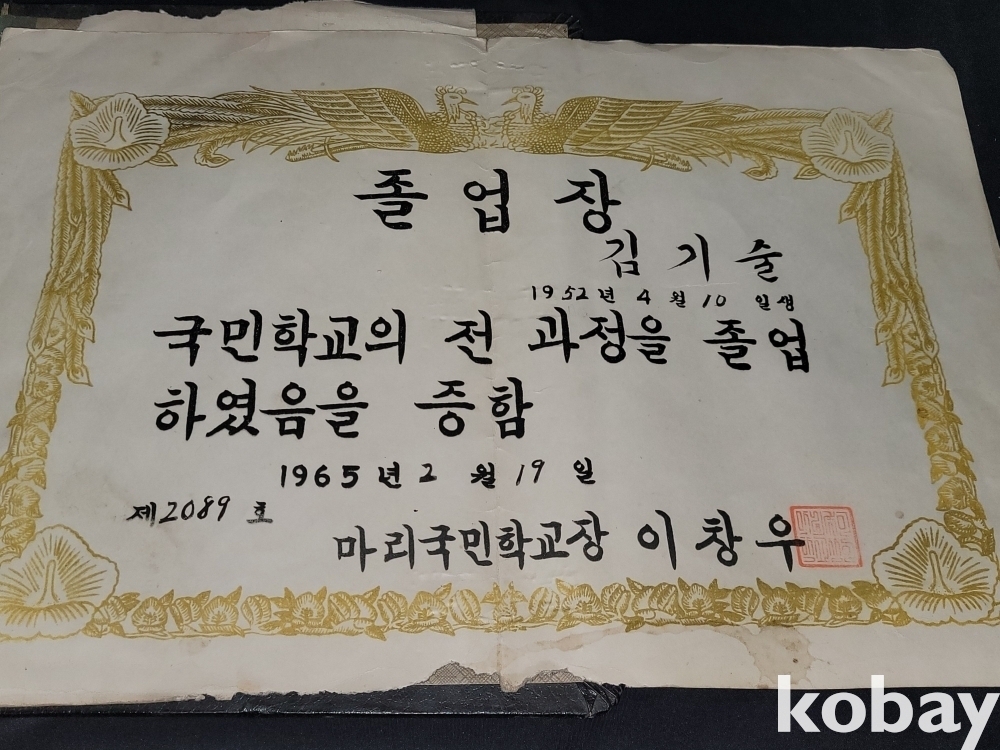 졸업장
김기술
1952년 4월 10일생
국민학교의 전 과정을 졸업
하였음을 증함
1965년 2월 19일
제2089호
마리국민학교장 이창우
kobay